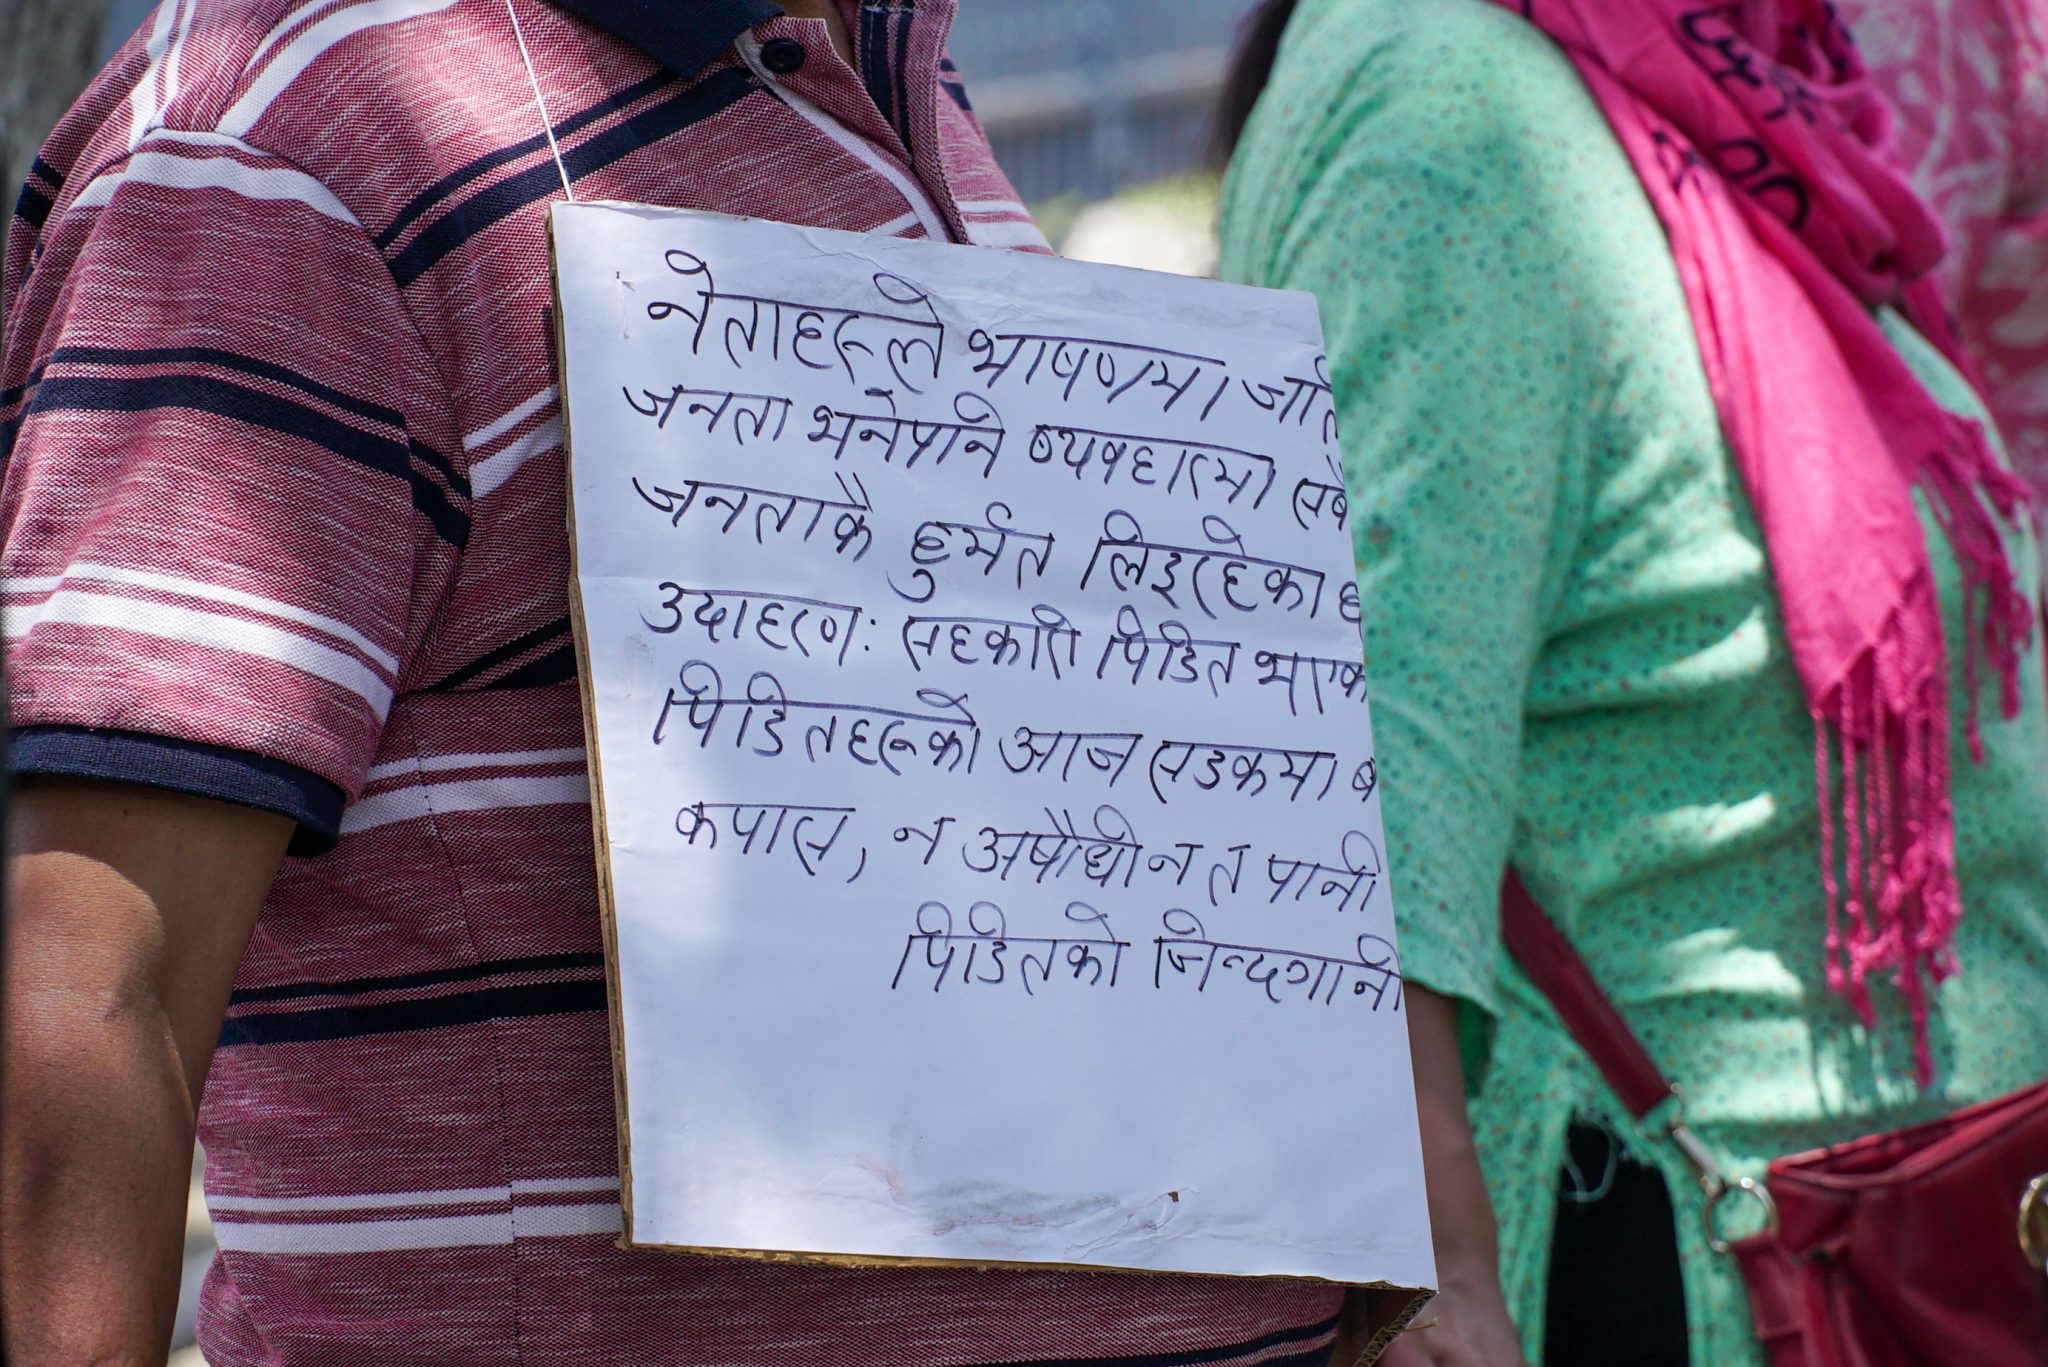 नेताहरुले भाषणमा जति
जनता भनेपनि व्यवहारमा सबै
जनताकै हुर्मत लिइरहेका
उदाहरण: सहकारी पिडित
पिडितहरुको आज सडकमा
कपास, न अषौधी न त पानी
पिडितको जिन्दगानी